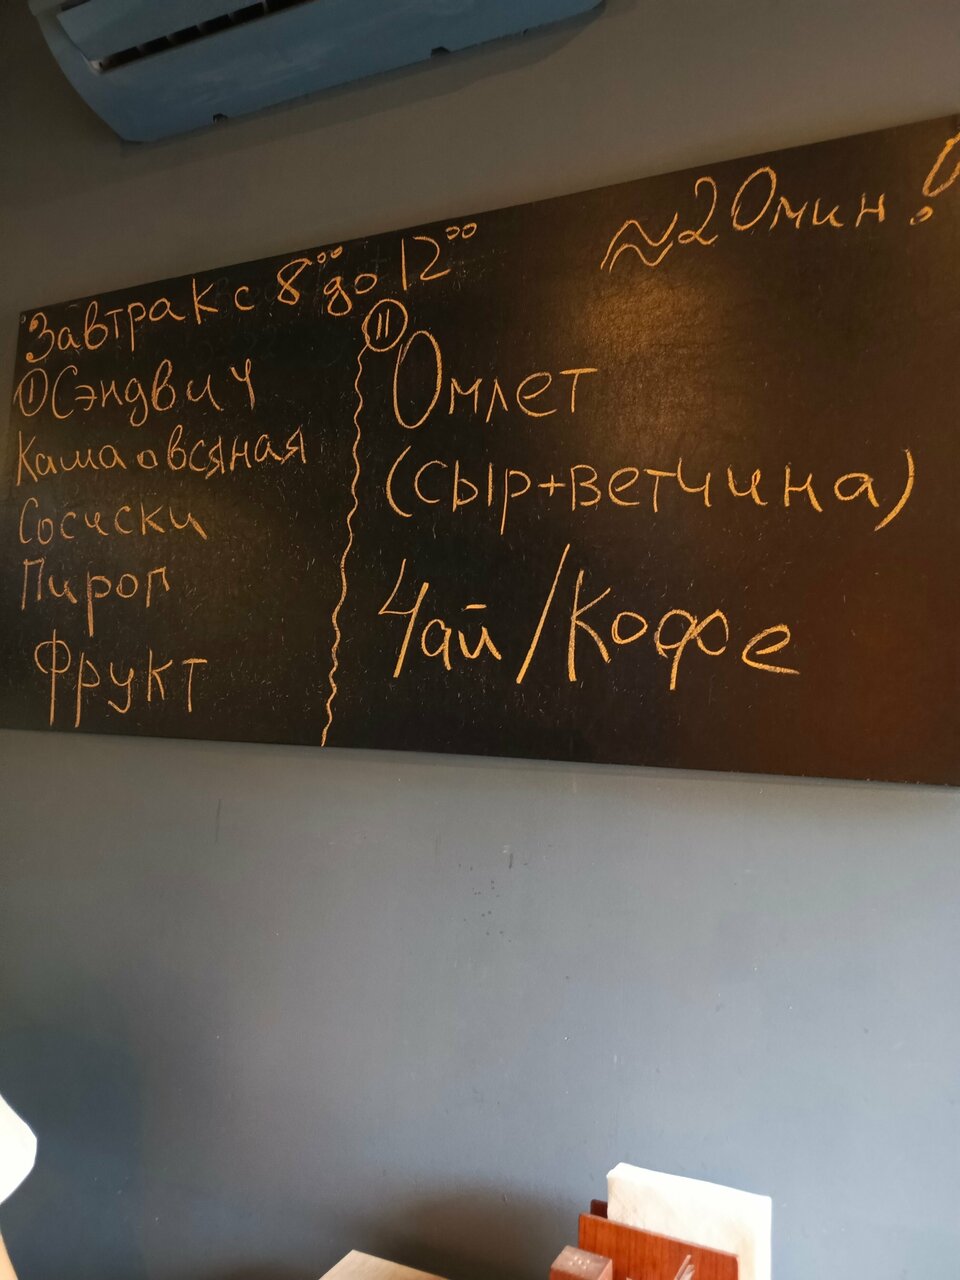 Завтрак с 8⁰⁰ до 12⁰⁰
≈20мин!
I Сэндвич
Каша овсяная
Сосиски
Пирог
Фрукт
II
Омлет
(сыр+ветчина)
Чай/Кофе